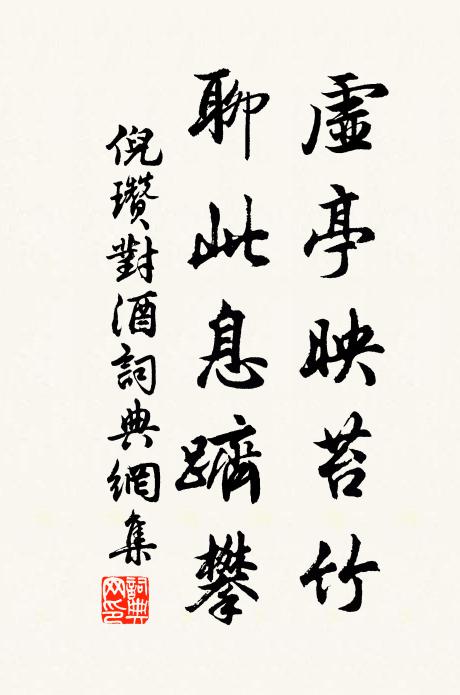 虛亭映苔竹
聊此息躋攀
倪瓚對酒詞典網集
詞典網印